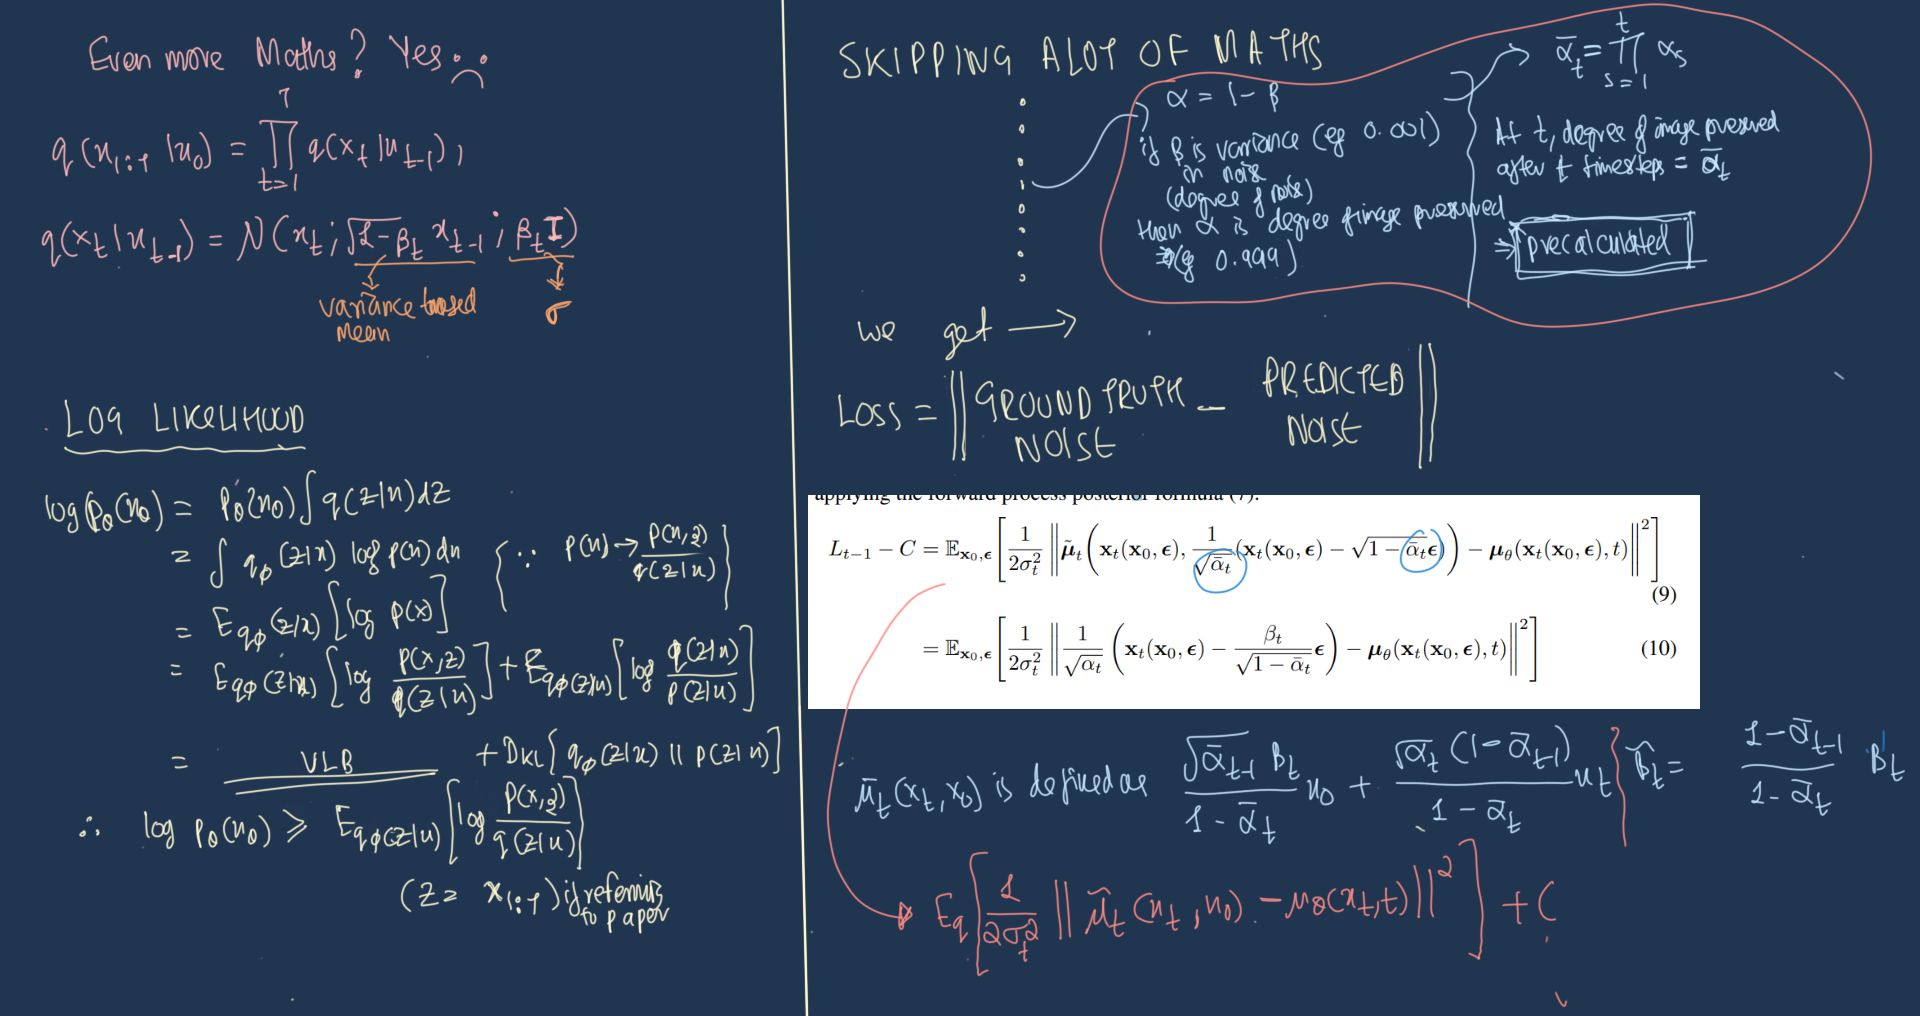 Even more Maths? Yes :(
q(x₁:T |x₀) = ∏_{t=1}^{T} q(xₜ|xₜ₋₁),
q(xₜ|xₜ₋₁) = N(xₜ; √(1-βₜ) xₜ₋₁; βₜI)
variance based
mean
σ
LOG LIKELIHOOD
log(pθ(x₀)) = pθ(x₀) ∫ q(z|x) dz
= ∫ qφ(z|x) log p(x) dx { ∵ p(x) → p(x,z)/q(z|x) }
= E_{qφ(z|x)} [log p(x)]
= E_{qφ(z|x)} [log p(x,z)/q(z|x)] + E_{qφ(z|x)} [log q(z|x)/p(z|x)]
= VLB + DKL[qφ(z|x) || p(z|x)]
∴ log pθ(x₀) ⩾ E_{qφ(z|x)} [log p(x,z)/q(z|x)]
(z = x₁:T) if referring
to paper
SKIPPING ALOT OF MATHS
α = 1 - β
if β is variance (eg 0.001)
in noise
(degree of noise)
then α is degree of image preserved
(eg 0.999)
ᾱₜ = ∏_{s=1}^{t} αₛ
At t, degree of image preserved
after t timesteps = ᾱₜ
⇒ precalculated
we get →
LOSS = || GROUND TRUTH NOISE - PREDICTED NOISE ||
applying the forward process posterior formula (7):
L_{t−1} − C = 𝔼_{x₀,ϵ} [ 1/(2σₜ²) || μ̃ₜ( xₜ(x₀, ϵ), 1/√ᾱₜ (xₜ(x₀, ϵ) − √(1 − ᾱₜ)ϵ) ) − μ_θ(xₜ(x₀, ϵ), t) ||² ]
(9)
= 𝔼_{x₀,ϵ} [ 1/(2σₜ²) || 1/√αₜ ( xₜ(x₀, ϵ) − βₜ/√(1 − ᾱₜ) ϵ ) − μ_θ(xₜ(x₀, ϵ), t) ||² ] (10)
μ̃ₜ(xₜ, x₀) is defined as (√ᾱₜ₋₁ βₜ)/(1 - ᾱₜ) x₀ + (√αₜ (1-ᾱₜ₋₁))/(1 - ᾱₜ) xₜ } β̃ₜ = (1-ᾱₜ₋₁)/(1-ᾱₜ) βₜ
Eq [ 1/(2σₜ²) || μ̃ₜ(xₜ, x₀) - μθ(xₜ, t) ||² ] + C